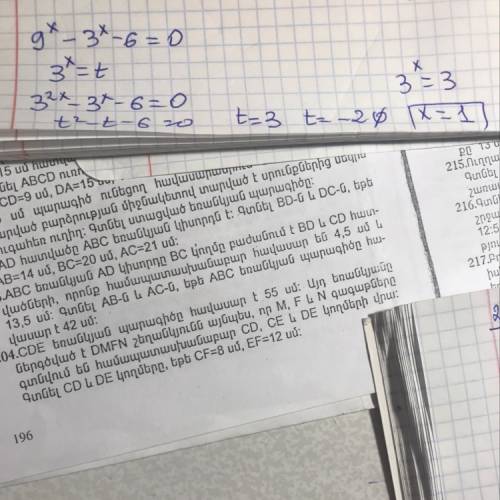 9ˣ - 3ˣ - 6 = 0
3ˣ = t
3²ˣ - 3ˣ - 6 = 0
t² - t - 6 = 0
t = 3 t = -2 ∅
3ˣ = 3
x = 1
նել ABCD ուղ
CD=9 սմ, DA=15 սմ
սմ պարագիծ ունեցող հավասարասրուն
AD հատվածը ABC եռանկյան կիսորդն է: Գտնել BD-ն և DC-ն, եթե
AB=14 սմ, BC=20 սմ, AC=21 սմ:
ABC եռանկյան AD կիսորդը BC կողմը բաժանում է BD և CD հատ-
վածների, որոնք համապատասխանաբար հավասար են 4,5 սմ և
13,5 սմ: Գտնել AB-ն և AC-ն, եթե ABC եռանկյան պարագիծը հա-
վասար է 42 սմ:
04.CDE եռանկյան պարագիծը հավասար է 55 սմ: Այդ եռանկյանը
ներգծված է DMFN շեղանկյունն այնպես, որ M, F և N գագաթները
գտնվում են համապատասխանաբար CD, CE և DE կողմերի վրա:
Գտնել CD և DE կողմերը, եթե CF=8 սմ, EF=12 սմ:
196
215.Ուղղ
Գտնել
216.
12:5
217.